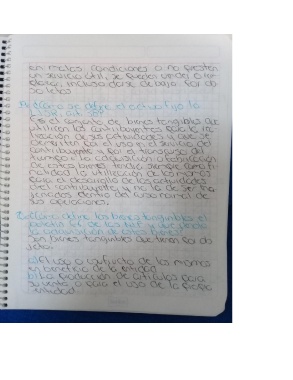 en malas condiciones o no presten
un servicio útil, se pueden vender o re-
incluso darse de baja por ob-
soletos
¿Cómo se define el activo fijo la
LISR, art. 
Es el conjunto de bienes tangibles que
utilicen los contribuyentes para la re-
de sus actividades y que se
demeriten por el uso en el servicio del
contribuyente y por el transcurso del
tiempo. la adquisición o fabricación
de estos bienes tendrá siempre como fi-
nalidad la utilización de los mismos
para el desarrollo de las actividades
del contribuyente, y no la de ser ena-
jenados dentro del curso normal de
sus operaciones.
¿Cómo define los bienes tangibles el
boletín C6 de las NIF y que
la adquisición de estos bienes?
Son bienes tangibles que tienen por ob-
jeto:
a) El uso o usufructo de los mismos
en beneficio de la entidad
b) La producción de artículos para
su venta o para el uso de la propia
entidad.